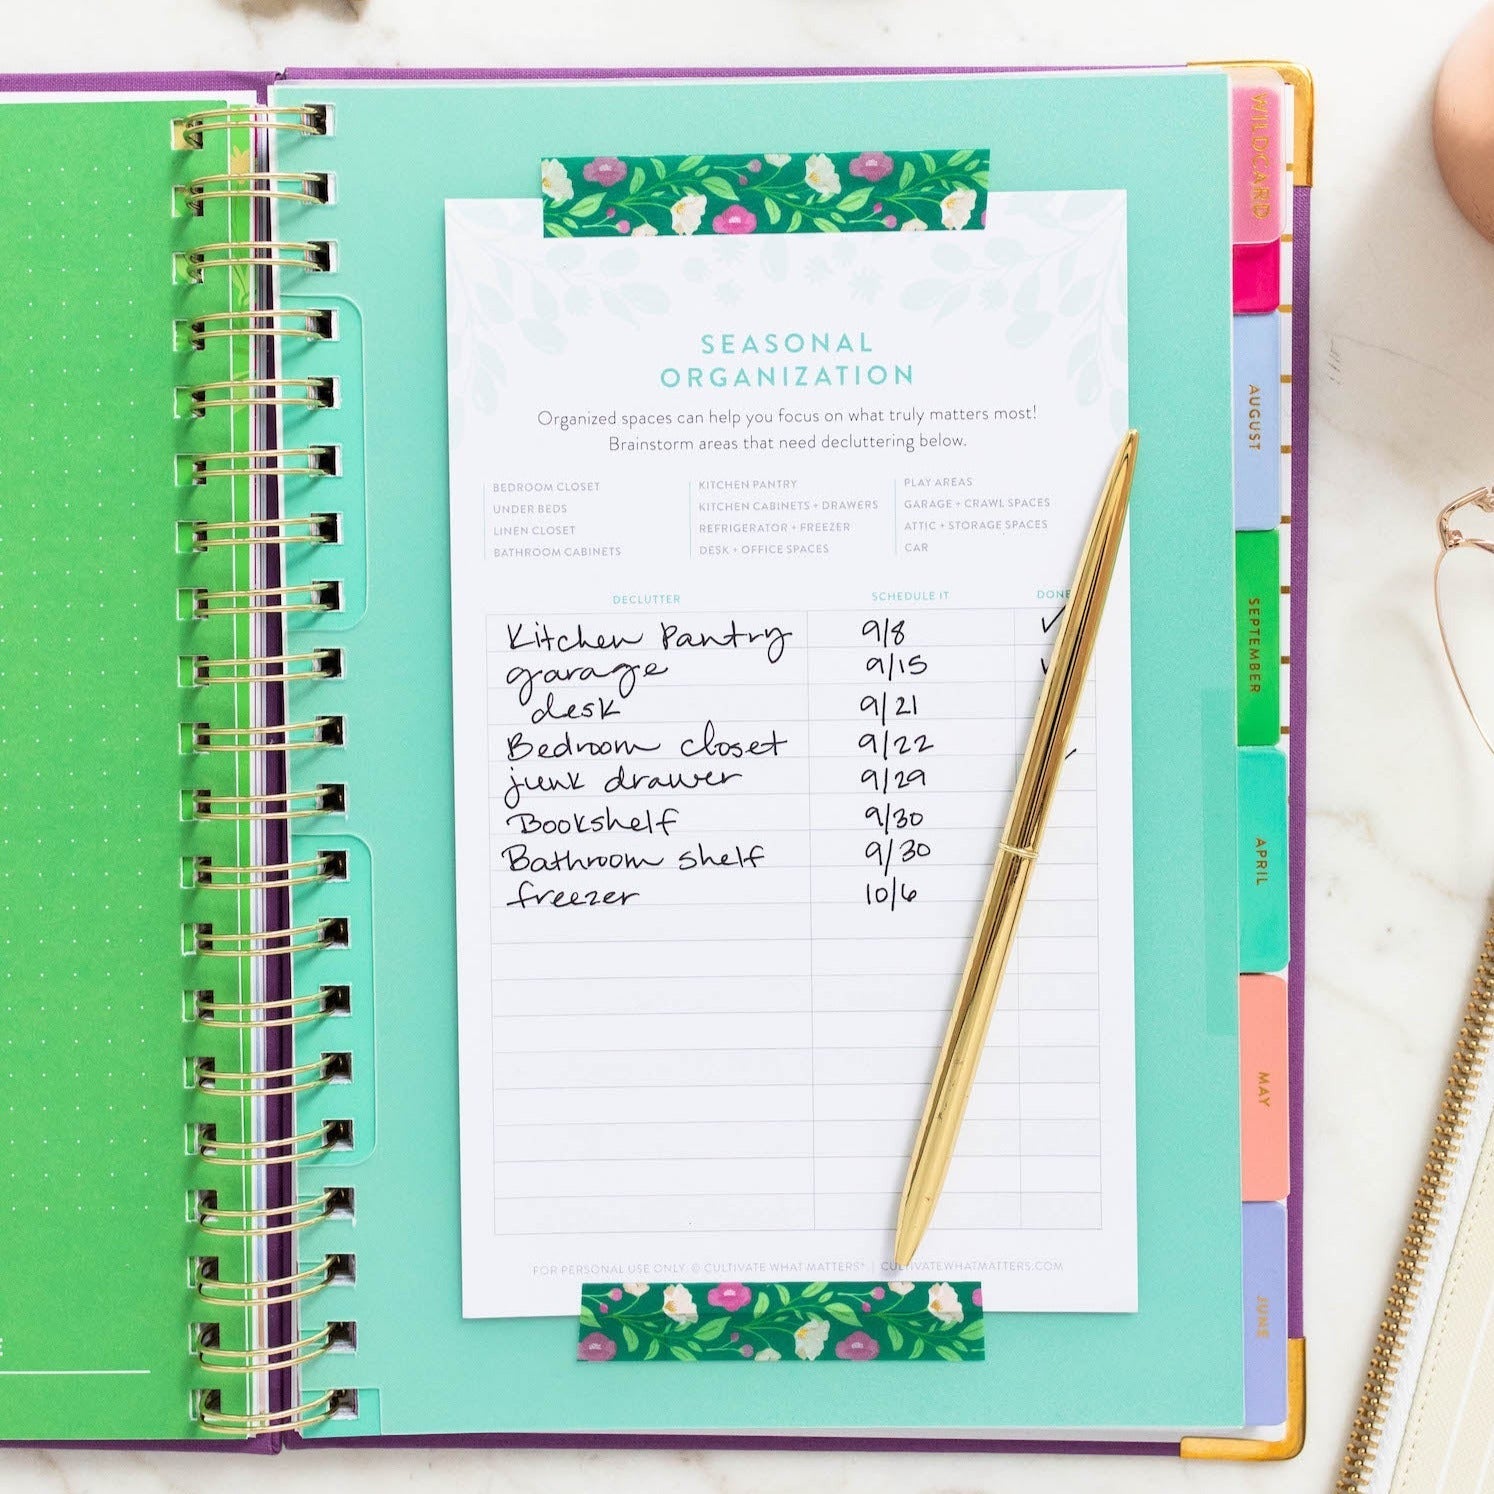 SEASONAL
ORGANIZATION
Organized spaces can help you focus on what truly matters most!
Brainstorm areas that need decluttering below.
BEDROOM CLOSET
UNDER BEDS
LINEN CLOSET
BATHROOM CABINETS
KITCHEN PANTRY
KITCHEN CABINETS + DRAWERS
REFRIGERATOR + FREEZER
DESK + OFFICE SPACES
PLAY AREAS
GARAGE + CRAWL SPACES
ATTIC + STORAGE SPACES
CAR
DECLUTTER SCHEDULE IT DONE
Kitchen Pantry 9/8 ✓
garage 9/15 ✓
desk 9/21
Bedroom closet 9/22
junk drawer 9/29
Bookshelf 9/30
Bathroom shelf 9/30
freezer 10/6
FOR PERSONAL USE ONLY. © CULTIVATE WHAT MATTERS® | CULTIVATEWHATMATTERS.COM
WILDCARD
AUGUST
SEPTEMBER
APRIL
MAY
JUNE